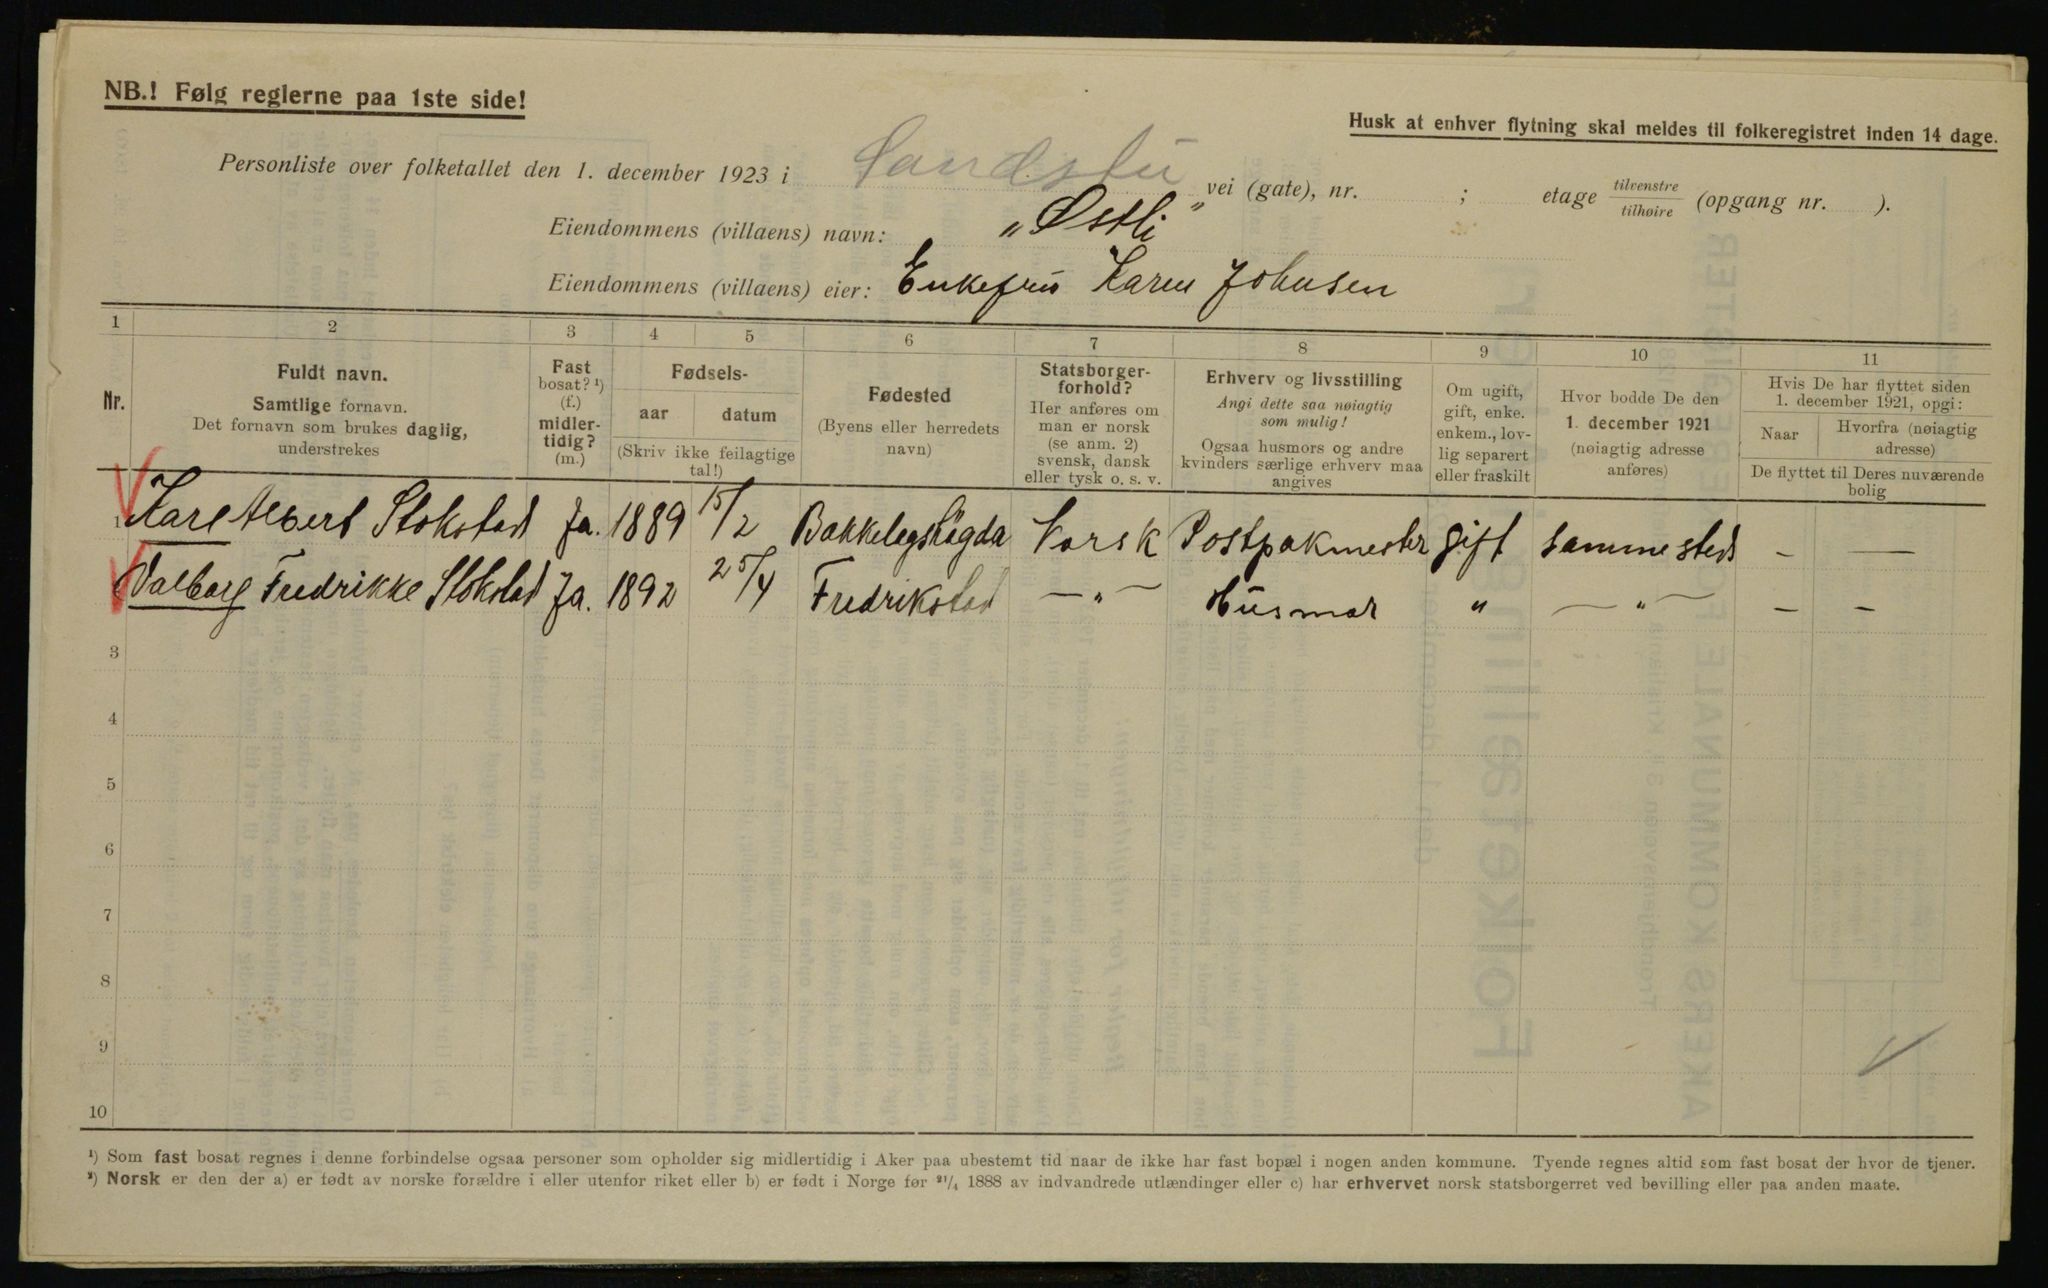 NB.! Følg reglerne paa 1ste side!
Husk at enhver flytning skal meldes til folkeregistret inden 14 dage.
Personliste over folketallet den 1. december 1923 i Sandstu vei (gate), nr. ; etage tilvenstre/tilhøire (opgang nr. ).
Eiendommens (villaens) navn: „Østli"
Eiendommens (villaens) eier: Enkefru Karen Johnsen
1 2 3 4 5 6 7 8 9 10 11
Nr.
Fuldt navn.
Samtlige fornavn.
Det fornavn som brukes daglig,
understrekes
Fast
bosat? ¹)
(f.)
midler-
tidig?
(m.)
Fødsels-
aar datum
(Skriv ikke feilagtige
tal!)
Fødested
(Byens eller herredets
navn)
Statsborger-
forhold?
Her anføres om
man er norsk
(se anm. 2)
svensk, dansk
eller tysk o. s. v.
Erhverv og livsstilling
Angi dette saa nøiagtig
som mulig!
Ogsaa husmors og andre
kvinders særlige erhverv maa
angives
Om ugift,
gift, enke.
enkem., lov-
lig separert
eller fraskilt
Hvor bodde De den
1. december 1921
(nøiagtig adresse
anføres)
Hvis De har flyttet siden
1. december 1921, opgi:
Naar Hvorfra (nøiagtig
adresse)
De flyttet til Deres nuværende
bolig
1 Karl Albert Stokstad Ja. 1889 15/2 Bakkelegshögda Norsk Postpakmester gift sammesteds – —
Valborg Fredrikke Stokstad Ja. 1892 25/4 Fredrikstad — „ — Husmor „ — „ — – –
3
4
5
6
7
8
9
10
¹) Som fast bosat regnes i denne forbindelse ogsaa personer som opholder sig midlertidig i Aker paa ubestemt tid naar de ikke har fast bopæl i nogen anden kommune. Tyende regnes altid som fast bosat der hvor de tjener.
²) Norsk er den der a) er født av norske forældre i eller utenfor riket eller b) er født i Norge før 21/4 1888 av indvandrede utlændinger eller c) har erhvervet norsk statsborgerret ved bevilling eller paa anden maate.